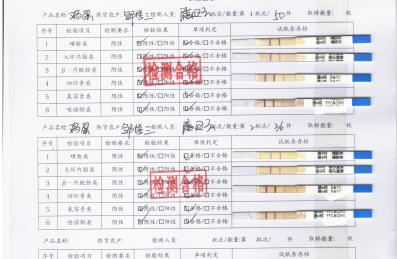 产品名称: 供货农户: 检测人员: 批次/数量:第 1 批次/ 50 件 取样数量: 枚
序号 检验项目 检测要求 检验结果 单项判定 试纸条存档
1 磺胺类 阴性 ☑阴性/□阳性 ☑合格/□不合格
2 大环内酯类 阴性 ☑阴性/□阳性 ☑合格/□不合格
3 β—内酰胺类 阴性 ☑阴性/□阳性 ☑合格/□不合格
4 四环素类 阴性 ☑阴性/□阳性 ☑合格/□不合格
5 氯霉素类 阴性 ☑阴性/□阳性 ☑合格/□不合格
6 喹诺酮类 阴性 ☑阴性/□阳性 ☑合格/□不合格
检测合格
产品名称: 供货农户: 检测人员: 批次/数量:第 2 批次/ 36 件 取样数量: 枚
序号 检验项目 检测要求 检验结果 单项判定 试纸条存档
1 磺胺类 阴性 ☑阴性/□阳性 ☑合格/□不合格
2 大环内酯类 阴性 ☑阴性/□阳性 ☑合格/□不合格
3 β—内酰胺类 阴性 ☑阴性/□阳性 ☑合格/□不合格
4 四环素类 阴性 ☑阴性/□阳性 ☑合格/□不合格
5 氯霉素类 阴性 ☑阴性/□阳性 ☑合格/□不合格
6 喹诺酮类 阴性 ☑阴性/□阳性 ☑合格/□不合格
检测合格
产品名称: 供货农户: 检测人员: 批次/数量:第 批次/ 件 取样数量: 枚
序号 检验项目 检测要求 检验结果 单项判定 试纸条存档